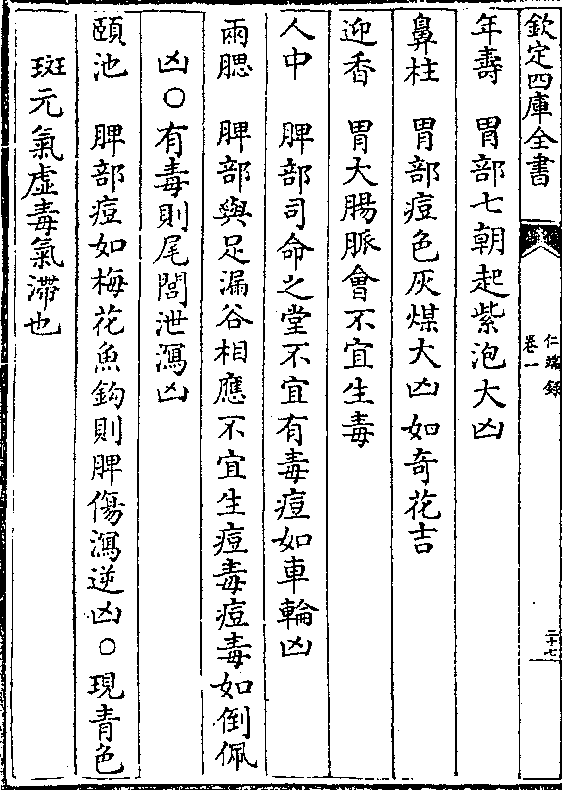 欽定四庫全書
仁端錄
卷一
二十七
年壽　胃部七朝起紫泡大凶
鼻柱　胃部痘色灰煤大凶如奇花吉
迎香　胃大腸脈會不宜生毒
人中　脾部司命之堂不宜有毒痘如車輪凶
兩腮　脾部與足漏谷相應不宜生痘毒痘毒如倒佩
凶○有毒則尾閭泄瀉凶
頤池　脾部痘如梅花魚鈎則脾傷瀉逆凶○現青色
斑元氣虛毒氣滯也